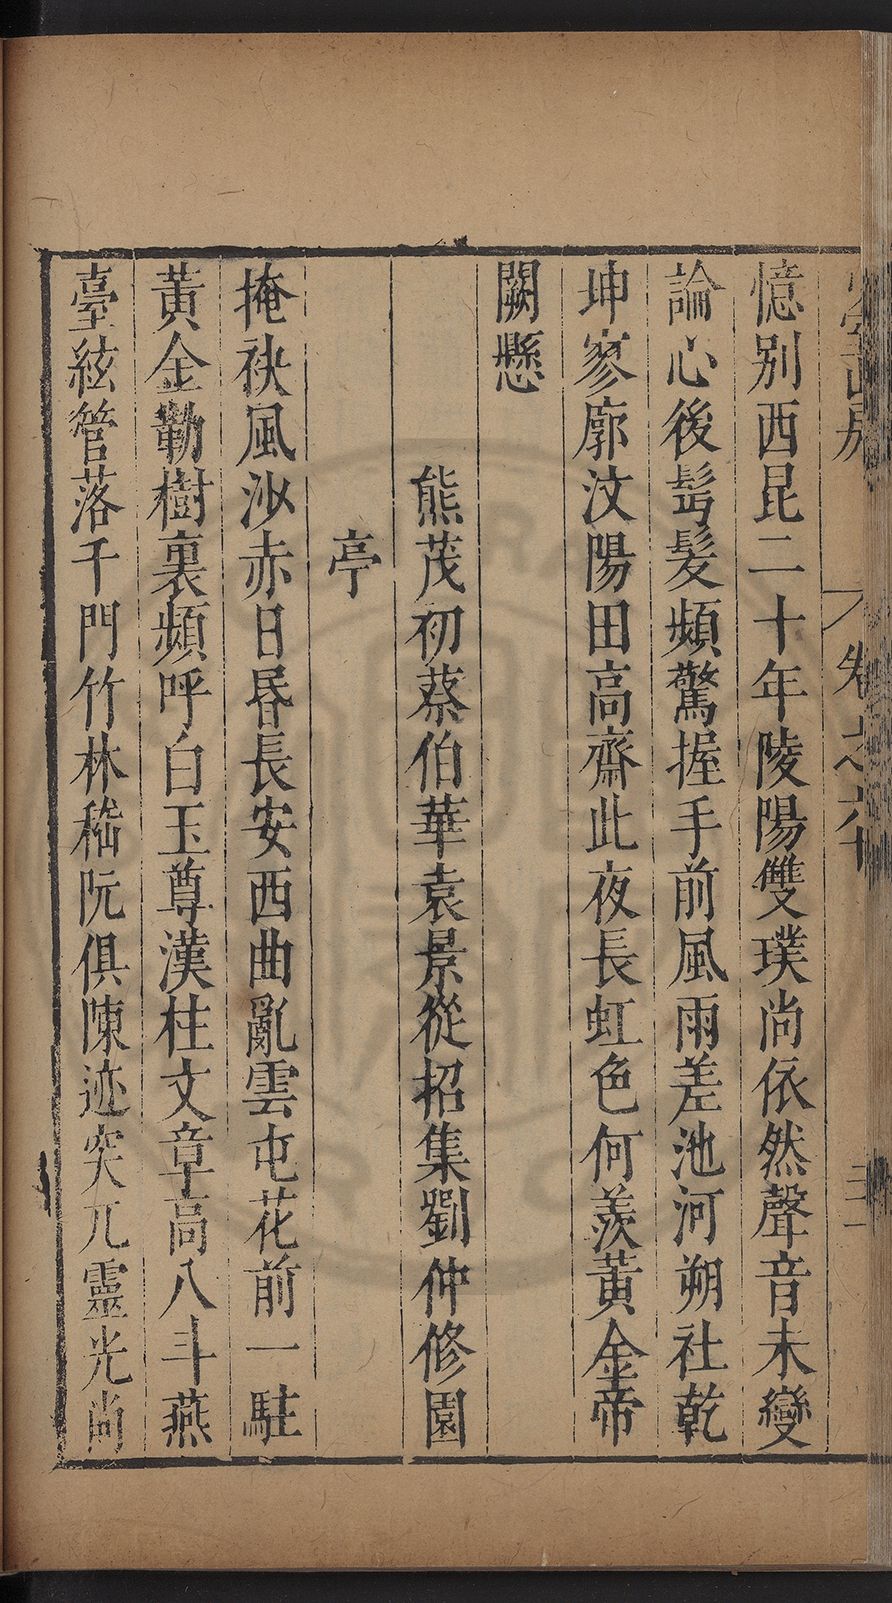 卷之六
憶別西昆二十年陵陽雙璞尚依然聲音未變
論心後髩髮頻驚握手前風雨差池河朔社乾
坤寥廓汶陽田高齋此夜長虹色何羨黃金帝
闕懸
熊茂初蔡伯華袁景從招集劉仲修園
亭
掩袂風沙赤日昬長安西曲亂雲屯花前一駐
黃金勒樹裏頻呼白玉尊漢柱文章高八斗燕
臺絃管落千門竹林嵇阮俱陳迹突兀靈光尚